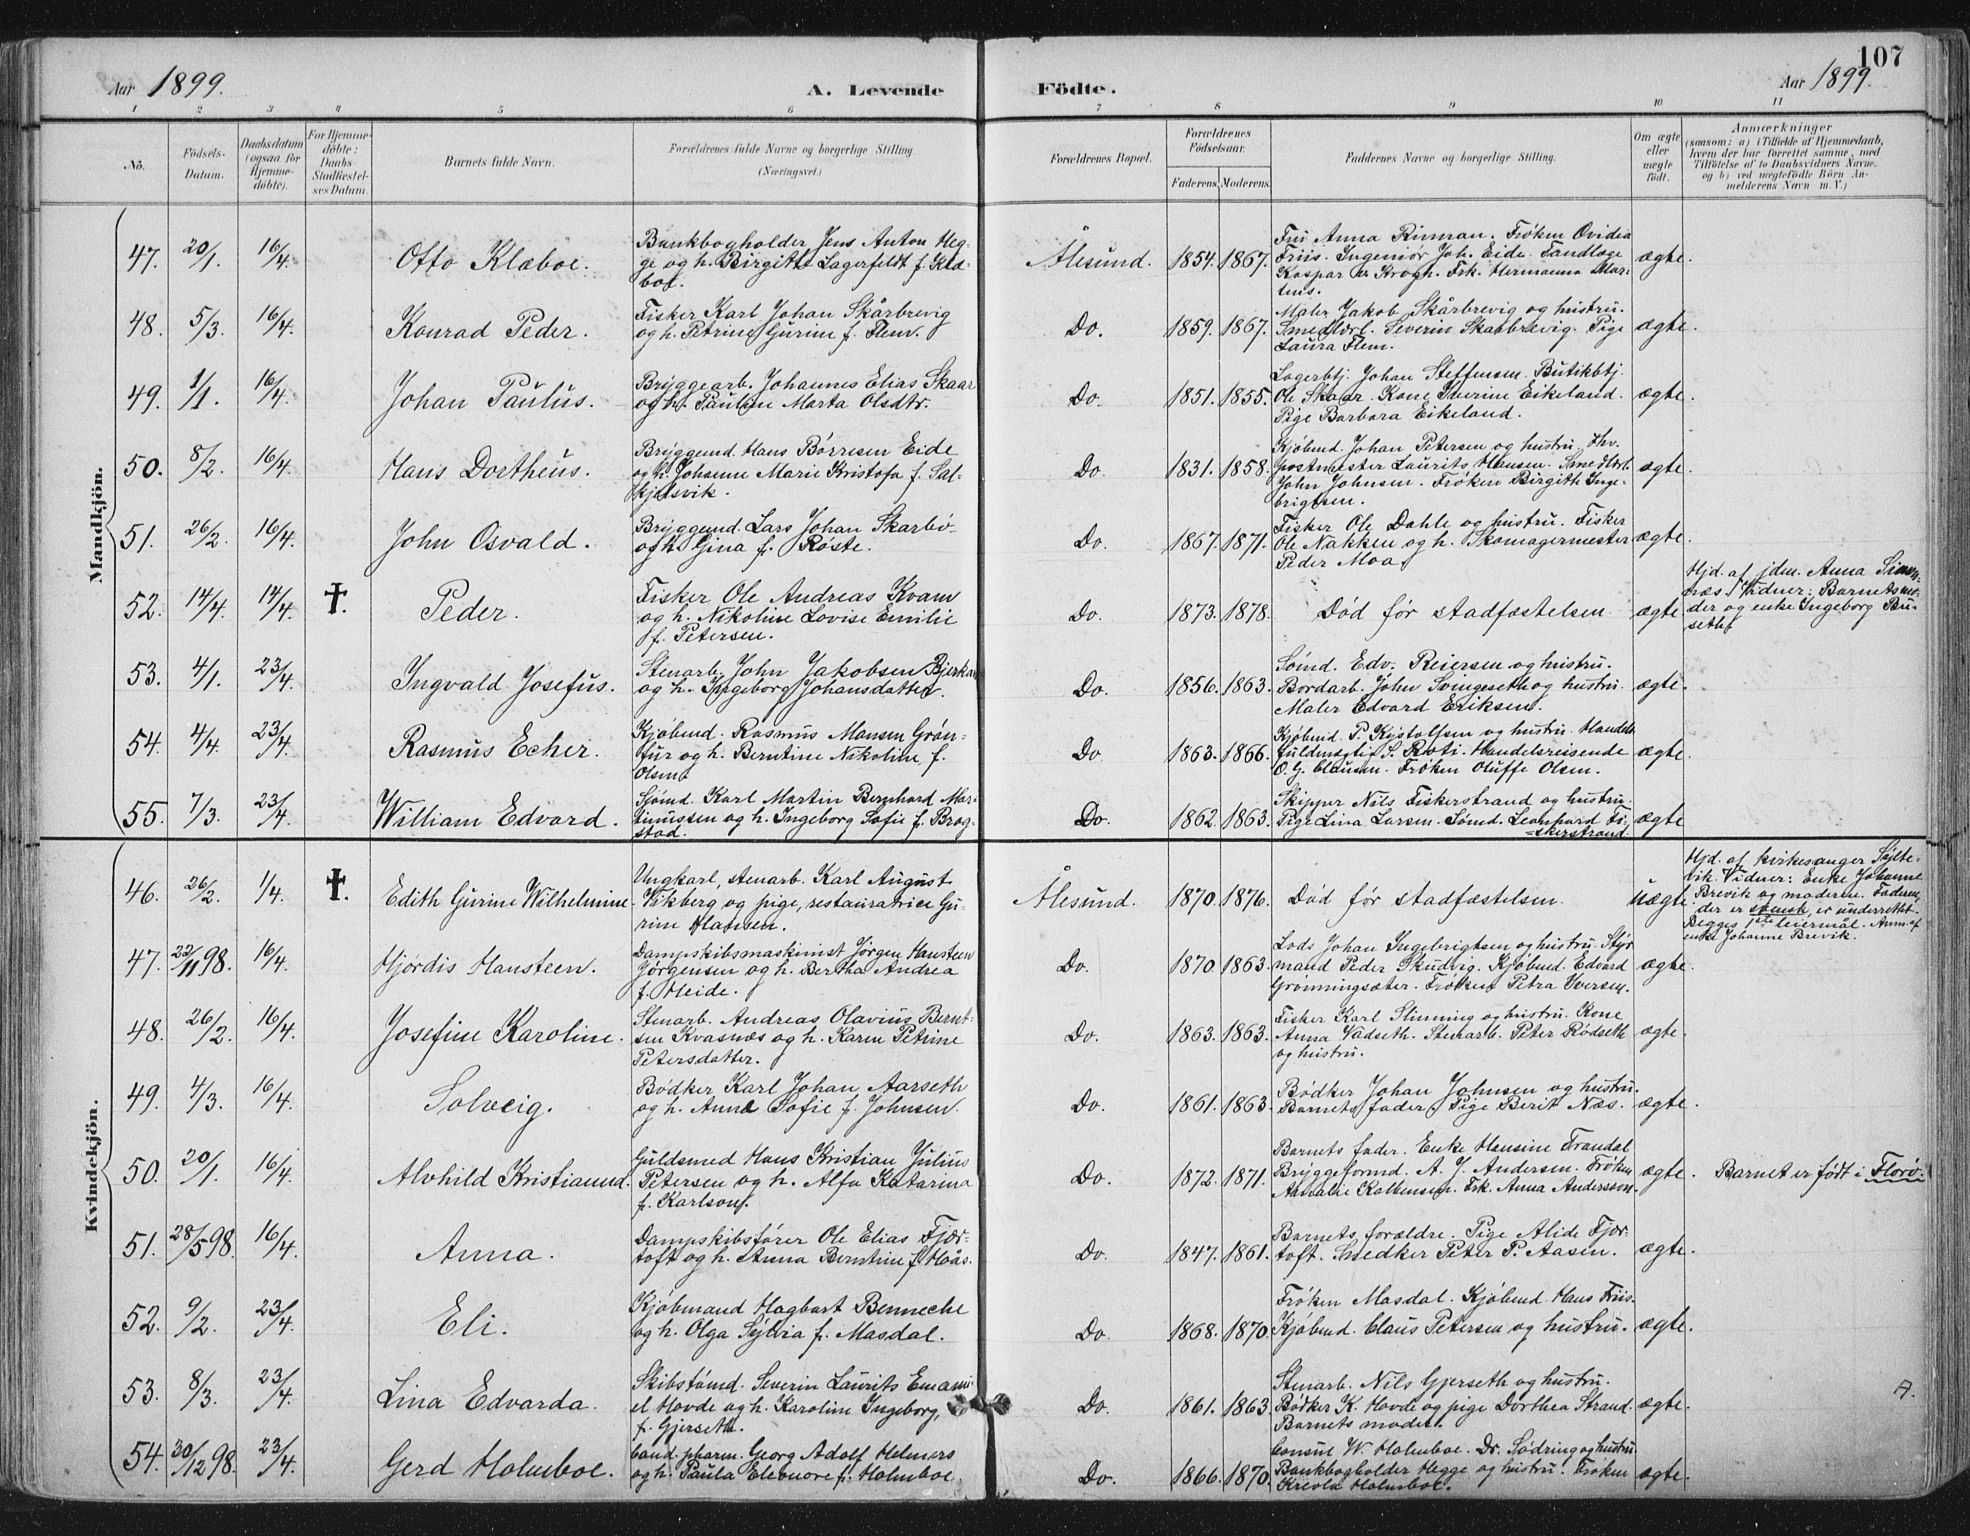 107
Aar 1899.
A. Levende Födte.
Aar 1899.
1 2 3 4 5 6 7 8 9 10 11
No.
Födsels-
Datum.
Daabsdatum
(ogsaa for
Hjemme-
döbte).
For Hjemme-
döbte:
Daabs-
Stadfæstel-
ses Datum.
Barnets fulde Navn.
Forældrenes fulde Navne og borgerlige Stilling.
(Næringsvei.)
Forældrenes Bopæl.
Forældrenes
Födselsaar.
Faderens. Moderens.
Faddernes Navne og borgerlige Stilling.
Om ægte
eller
uægte
födt.
Anmærkninger
(saasom: a) i Tilfælde af Hjemmedaab,
hvem der har forrettet samme, med
Tilföielse af to Daabsvidners Navne,
og b) ved uægtefödte Börn An-
melderens Navn m. V.)
Mandkjön.
47. 20/1. 16/4. Otto Klæboe.
Bankbogholder Jens Anton Heg-
ge og h. Birgitte Lagerfeldt f. Klæ-
boe.
Ålesund. 1854. 1867.
Fru Anna Rinnan. Frøken Ovidia
Friis. Ingeniør Joh. Eide. Tandlæge
Kaspar Krogh. Frk. Hermanna Mar-
tens.
ægte.
48. 5/3. 16/4. Konrad Peder.
Fisker Karl Johan Skårbrevig
og h. Petrine Gurine f. Flem.
Do. 1859. 1867.
Maler Jakob Skårbrevig og hustru.
Smedlærl. Severin Skarbrevig. Pige
Laura Flem.
ægte.
49. 1/1. 16/4. Johan Paulus.
Bryggearb. Johannes Elias Skaar
og h. Pauline Marta Olsdtr.
Do. 1851. 1855.
Lagerbtj. Johan Steffensen. Butikbtj.
Ole Skaar. Kone Severine Eikeland.
Pige Barbara Eikeland.
ægte.
50. 8/2. 16/4. Hans Dortheus.
Bryggemd. Hans Børresen Eide
og h. Johanne Marie Kristofa f. Sal-
kjelsvik.
Do. 1831. 1858.
Kjøbmd. Johan Petersen og hustru. Fhv.
postmester Laurits Hansen. Smedlærl.
John Johnsen. Frøken Birgith Inge-
brigtsen.
ægte.
51. 26/2. 16/4. John Osvald.
Bryggemd. Lars Johan Skarbø
og h. Gina f. Røste.
Do. 1867. 1871.
Fisker Ole Dahle og hustru. Fisker
Ole Nakken og h. Skomagermester
Peder Moa.
ægte.
52. 14/4. 14/4. †. Peder.
Fisker Ole Andreas Kvam
og h. Nikoline Lovise Emilie
f. Petersen.
Do. 1873. 1878.
Død før stadfæstelsen.
ægte.
Hjd. af jdm. Anna
Vidner: Barnetsmo-
der og enke Ingeborg Bu-
seth.
53. 4/1. 23/4. Ingvald Josefus.
Stenarb. John Jakobsen Bjerkan
og h. Ingeborg Johansdatter.
Do. 1856. 1863.
Sømd. Edv. Reiersen og hustru.
Bordarb. John Svingeseth og hustru.
Maler Edvard Eriksen.
ægte.
54. 4/4. 23/4. Rasmus Echer.
Kjøbmd. Rasmus Monsen Grøn-
fur og h. Berntine Nikoline f.
Olsen.
Do. 1863. 1866.
Kjøbmd. P. Kjstolfsen og hustru. Handels-
fuldmægtig S. Roti. Handelsreisende
O. G. Clausen. Frøken Oluffe Olsen.
ægte.
55. 7/3. 23/4. William Edvard.
Sjømd. Karl Martin Bernhard Mar-
tinussen og h. Ingeborg Sofie f. Brag-
stad.
Do. 1862. 1863.
Skipper Nils Fiskerstrand og hustru.
Pige Lina Larsen. Sømd. Leonhard Fi-
skerstrand.
ægte
Kvindekjön.
46. 26/2. 1/4. †. Edith Gurine Wilhelmine.
Ungkarl, stenarb. Karl August
Wikberg og pige, restauratrice Gu-
rine Hansen.
Ålesund. 1870. 1876.
Død før stadfæstelsen.
uægte.
Hjd. af kirkesanger Sylte-
vik. Vidner: Enke Johanne
Brevik og moderen. Faderen,
der er svensk, er underrettet.
Begges 1ste leiermål. Anm. af
enke Johanne Brevik.
47. 22/11 98. 16/4. Hjørdis Hansteen.
Dampskibsmaskinist Jørgen Hansteen
Jørgensen og h. Bertha Andrea
f. Heide.
Do. 1870. 1863.
Lods Johan Ingebrigtsen og hustru. Styr-
mand Peder Skudvig. Kjøbmd. Edvard
Grønningsæter. Frøken Petra Iversen.
ægte.
48. 26/2. 16/4. Josefine Karoline.
Stenarb. Andreas Olavius Bernt-
sen Kvasnæs og h. Karen Petrine
Petersdatter.
Do. 1863. 1863.
Fisker Karl Slinning og hustru. Kone
Anna Vadseth. Stenarb. Peter Rødseth
og hustru.
ægte.
49. 4/3. 16/4. Solveig.
Bødker Karl Johan Aarseth
og h. Anne Sofie f. Johnsen.
Do. 1861. 1863.
Bødker Johan Johnsen og hustru.
Barnets fader. Pige Berit Næs.
ægte.
50. 20/1. 16/4. Alvhild Kristianud.
Guldsmed Hans Kristian Julius
Petersen og h. Alfa Katarina
f. Karlson.
Do. 1872. 1871.
Barnets fader. Enke Hansine Frandal
Bryggeformd. A. J. Andersen. Frøken
Amalie Kalbensen. Frk. Anna Andersson.
ægte.
Barnet er født i Florø.
51. 28/5 98. 16/4. Anna.
Dampskibsfører Ole Elias Fjør-
toft og h. Anna Berntine f. Haås.
Do. 1847. 1861.
Barnets forældre. Pige Alide Fjør-
toft. Snedker Peter P. Aasen.
ægte.
52. 9/2. 23/4. Eli.
Kjøbmand Hagbart Benneche
og h. Olga Sylvia f. Masdal.
Do. 1868. 1870.
Frøken Masdal. Kjøbmd Hans Friis.
Kjøbmd. Claus Petersen og hustru.
ægte.
53. 8/3. 23/4. Lina Edvarda.
Skibstømd. Severin Laurits Emanu-
el Hovde og h. Karoline Ingeborg,
f. Gjerseth.
Do. 1861. 1863.
Stenarb. Nils Gjerseth og hustru.
Bødker K. Hovde og pige Dorthea Strand.
Barnets moder.
ægte.
A.
54. 30/12 98. 23/4. Gerd Holmboe.
Cand. pharm. Georg Adolf Helmers
og h. Paula Eleonore f. Holmboe.
Do. 1866. 1870.
Consul W. Holmboe. Dr. Sødring og hustru.
Bankbogholder Hegge og hustru. Frøken
Holmboe.
ægte.